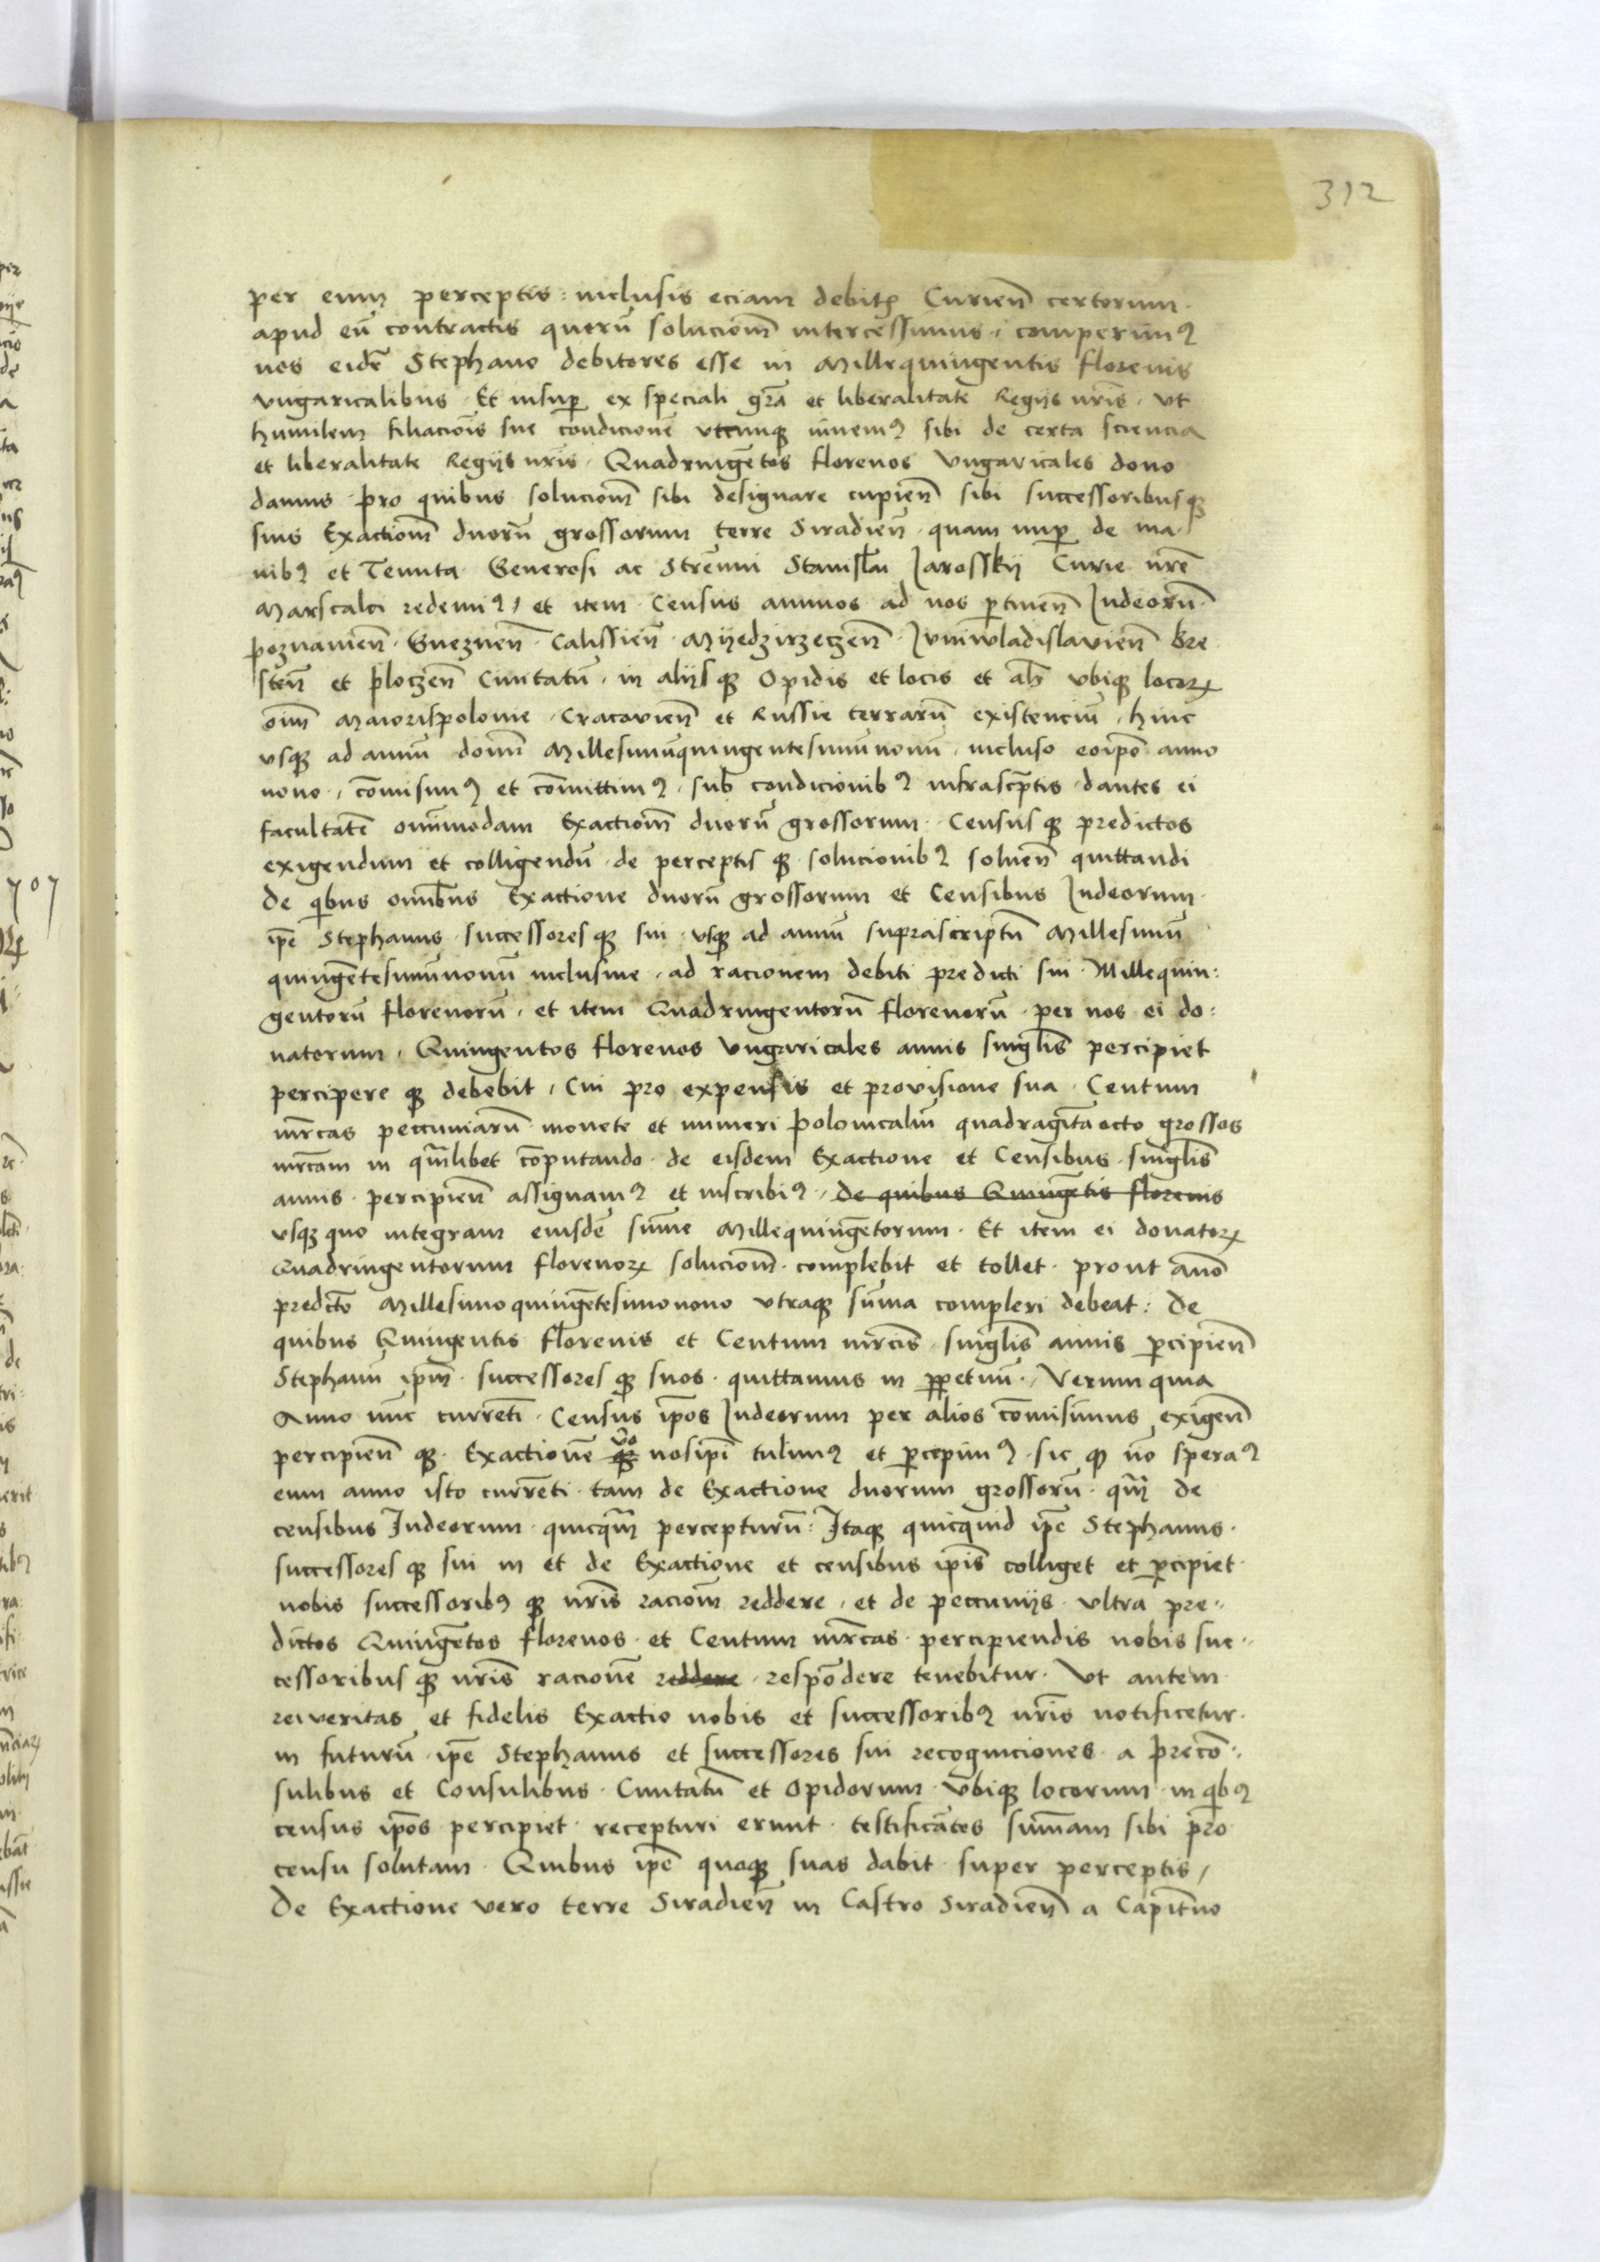 312
per eum perceptis: inclusis eciam debitꝫ Curien̄ certorum
apud eū contractis quorū solucionē intercessimus, comperimꝰ
nos eidē Stephano debitores esse in Millequingentis florenis
vngaricalibus. Et insuꝑ ex speciali gr̄a et liberalitate Regijs nr̄is, vt
humilem filiaciōis sue condicionē vtcunqꝫ iuuemꝰ sibi de certa sciencia
et liberalitate Regijs nr̄is, Quadringētos florenos Vngaricales dono
damus. pro quibus solucionē sibi designare cupien̄ sibi successoribusqꝫ
suis Exactionē duorū grossorum terre Siradien̄. quam nuꝑ de ma-
nibꝰ et Tenuta Generosi ac Strenui Stanisl̄ai Jarosskij Curie nr̄e
Marscalci redemiꝰ, et item Census annuos ad nos ꝑtinen̄ Judeorū
poznanien̄. Gneznen̄ Calissien̄. Myedzirzeczen̄. Juniwladislauien̄ bre
sten̄ et ploczen̄ Ciuitatū. in alijsqꝫ Opidis et locis et al̄s vbiqꝫ locoꝝ
oīm Maiorispolonie. Cracouien̄ et Russie terrarū existenciū, hinc
vsqꝫ ad annū domī Millesimūquingentesimūnonū. incluso eoip̄o anno
nono, cōmisimꝰ et cōmittimꝰ, sub condicionibꝰ infrascr̄ptis. dantes ei
facultatē omnimodam Exactionē duorū grossorum. Censusqꝫ predictos
exigendum et colligendū. de perceptisqꝫ solucionibꝰ soluen̄ quittandi
De qͥbus omībus Exactione duorū grossorum et Censibus Judeorum.
ip̄e Stephanus. successoresqꝫ sui. vsqꝫ ad annū suprascriptū Millesimū
quingētesimūnonū inclusiue, ad racionem debiti predicti sui Millequin:
gentorū florenorū, et item Quadringentorū florenorū. per nos ei do:
natorum, Quingentos florenos Vngaricales annis singl̄is percipiet
percipereqꝫ debebit, Cui pro expensis et prouisione sua. Centum
mr̄cas pecuniarū monete et numeri polonicaliū quadragīta octo grossos
mr̄cam in qm̄libet cōputando. de eisdem Exactione et Censibus. singl̄is
annis. percipien̄ assignamꝰ et inscribiꝰ. de quibus Quingētis florenis
vsqꝫquo integram eiusdē sūme Millequingētorum. Et item ei donatoꝝ
Quadringentorum florenoꝝ solucionē. complebit et tollet. prout anō
predicto Millesimoquingētesimonono vtraqꝫ sūma compleri debeat: De
quibus Quingentis florenis et Centum mr̄cis, singl̄is annis ꝑcipien̄
Stephanū ip̄m. successoresqꝫ suos. quittamus in ꝑpetuū. Verum quia
Anno nūc currenti. Census ip̄os Judeorum per alios cōmisimus exigen̄
percipien̄qꝫ. Exactionē qꝫ v̄o nosip̄i tulimꝰ et ꝑcepimꝰ. sic ꝙ nō speraꝰ
eum anno isto currēti. tam de Exactione duorum grossorū. qm̄ de
censibus Judeorum. quicqm̄ percepturū: Itaqꝫ quicquid ip̄e Stephanus.
successoresqꝫ sui in et de Exactione et censibus ip̄is colliget et ꝑcipiet
nobis successoribꝰqꝫ nr̄is racionē reddere, et de peccunijs. vltra pre-
dictos Quingētos florenos. et Centum mr̄cas. percipiendis nobis suc-
cessoribusqꝫ nr̄is racionē reddere. respōdere tenebitur. Vt autem
rei veritas et fidelis Exactio nobis et successoribꝰ nr̄is notificetur.
in futurū. ip̄e Stephanus et successores sui recogniciones. a precō-
sulibus et Consulibus. Ciuitatū et Opidorum. vbiqꝫ locorum. in qͥbꝰ
census ip̄os percipiet. recepturi erunt. testificātes sum̄am sibi pro
censu solutam. Quibus ip̄e quoqꝫ suas dabit. super perceptis,
De Exactione vero terre Siradien̄ in Castro Siradien̄ a Capit̄no